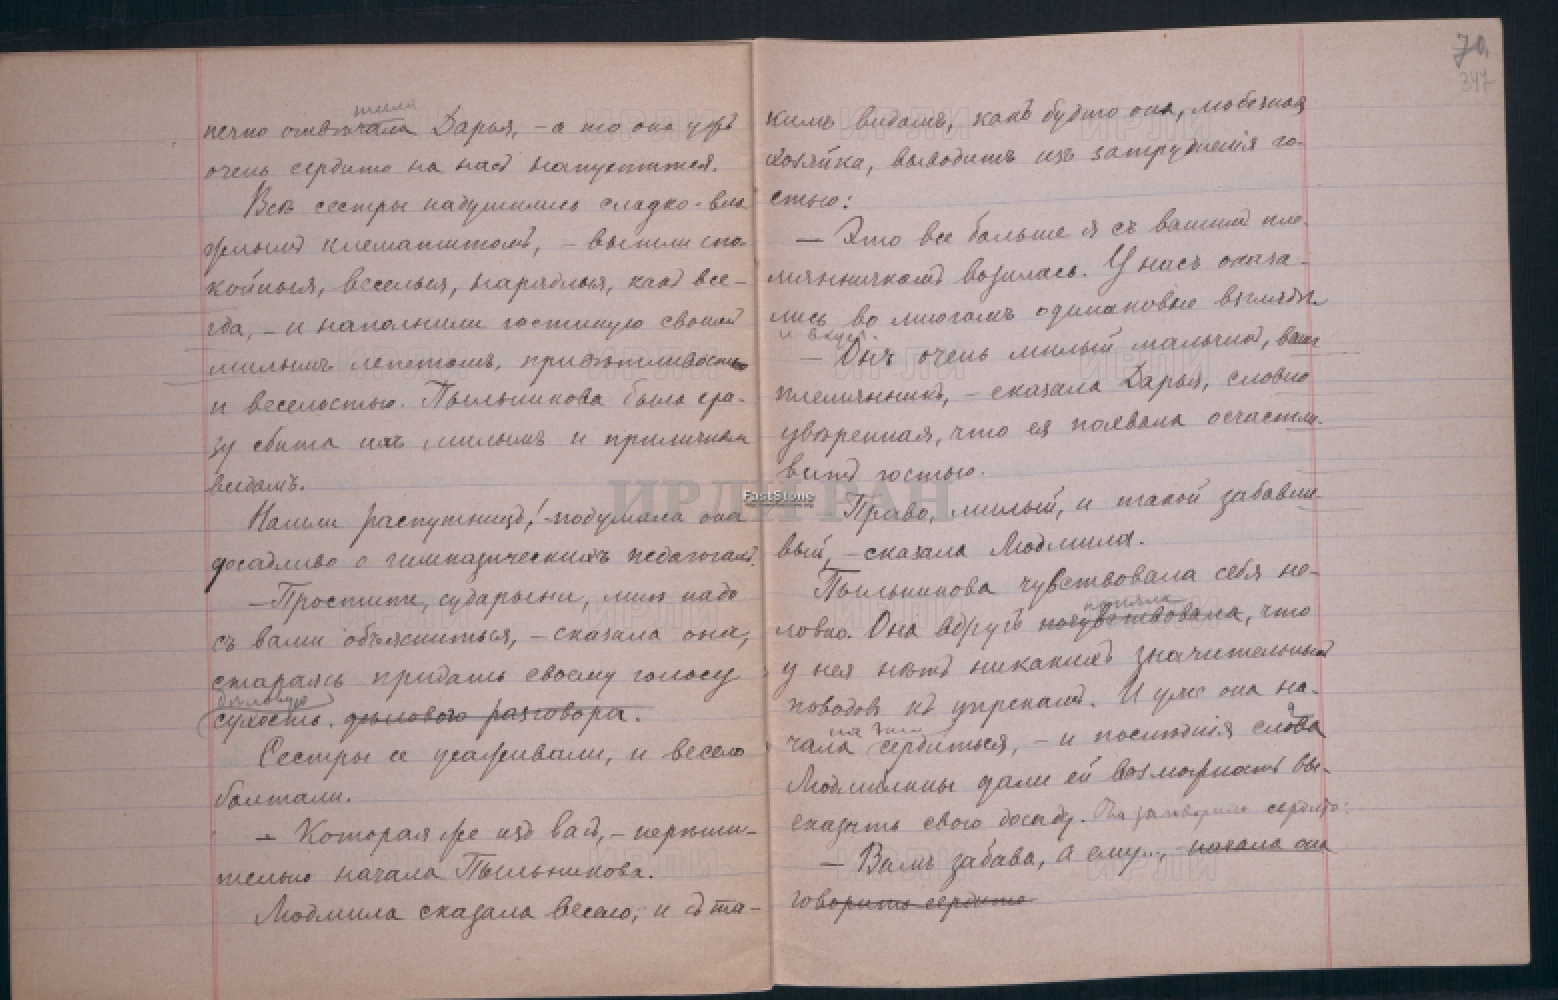 шила
печно отвѣчала Дарья, – а то она ужъ
очень сердито на насъ напустится.
Всѣ сестры надушились сладко-вла
жнымъ клематитомъ, – вышли спо
койныя, веселыя, нарядныя, какъ все-
гда, – и наполнили гостиную своимъ
милымъ лепетомъ, привѣтливостью
и веселостью. Пыльникова была сра-
зу сбита ихъ милымъ и приличнымъ
видомъ.
Нашли распутницъ! – подумала она
досадливо о гимназическихъ педагогахъ.
– Простите, сударыни, мнѣ надо
съ вами объясниться, – сказала она,
стараясь придать своему голосу
дѣловую
сухость. дѣлового разговора.
Сестры ее усаживали, и весело
болтали.
– Которая же изъ васъ, – нерѣши-
тельно начала Пыльникова.
Людмила сказала весело, и съ та-
70.
347
кимъ видомъ, какъ будто она, любезная
хозяйка, выводитъ изъ затрудненія го-
стью:
– Это все больше я съ вашимъ пле-
мянничкомъ возилась. У насъ оказа-
лись во многомъ одинаковые взгляды
и вкусы.
– Онъ очень милый мальчикъ, вашъ
племянникъ, – сказала Дарья, словно
увѣренная, что ея похвала осчастли-
витъ гостью.
– Право, милый, и такой забавли-
вый, – сказала Людмила.
Пыльникова чувствовала себя не-
поняла
ловко. Она вдругъ почувствовала, что
у нея нѣтъ никакихъ значительныхъ
поводовъ къ упрекамъ. И уже она на-
на это
чала сердиться, – и послѣднія слова
Людмилины дали ей возможность вы-
сказать свою досаду. Она заговорила сердито:
– Вамъ забава, а ему..., – начала она
говорить сердито
ИРЛИ РАН
FastStone